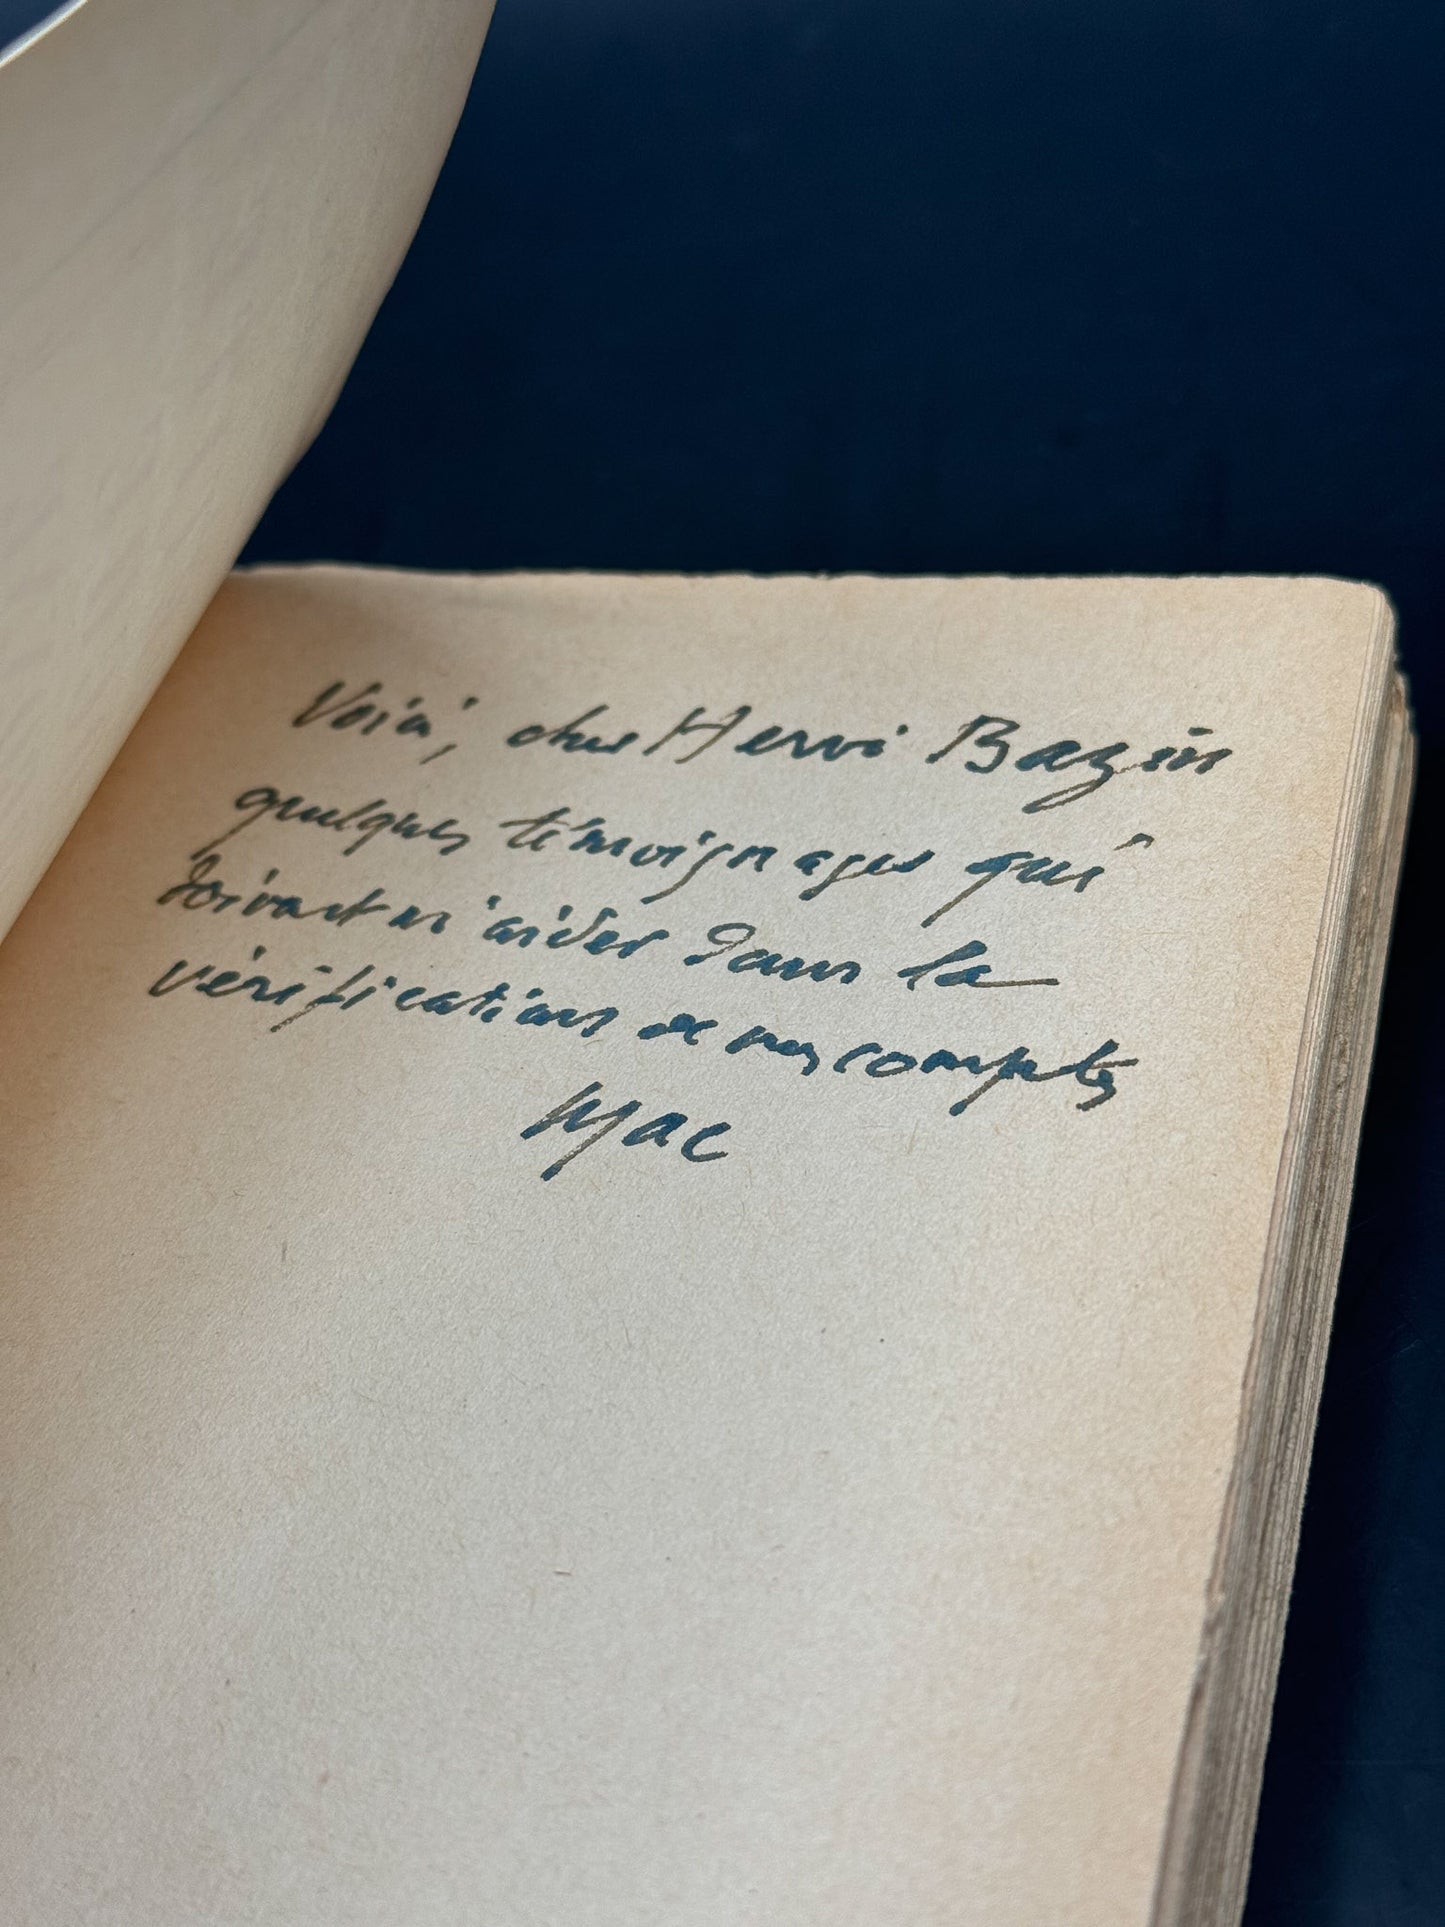 Voici, cher Hervé Bazin
quelques témoignages qui
doivent m'aider dans la
vérifications de mes comptes
Mac